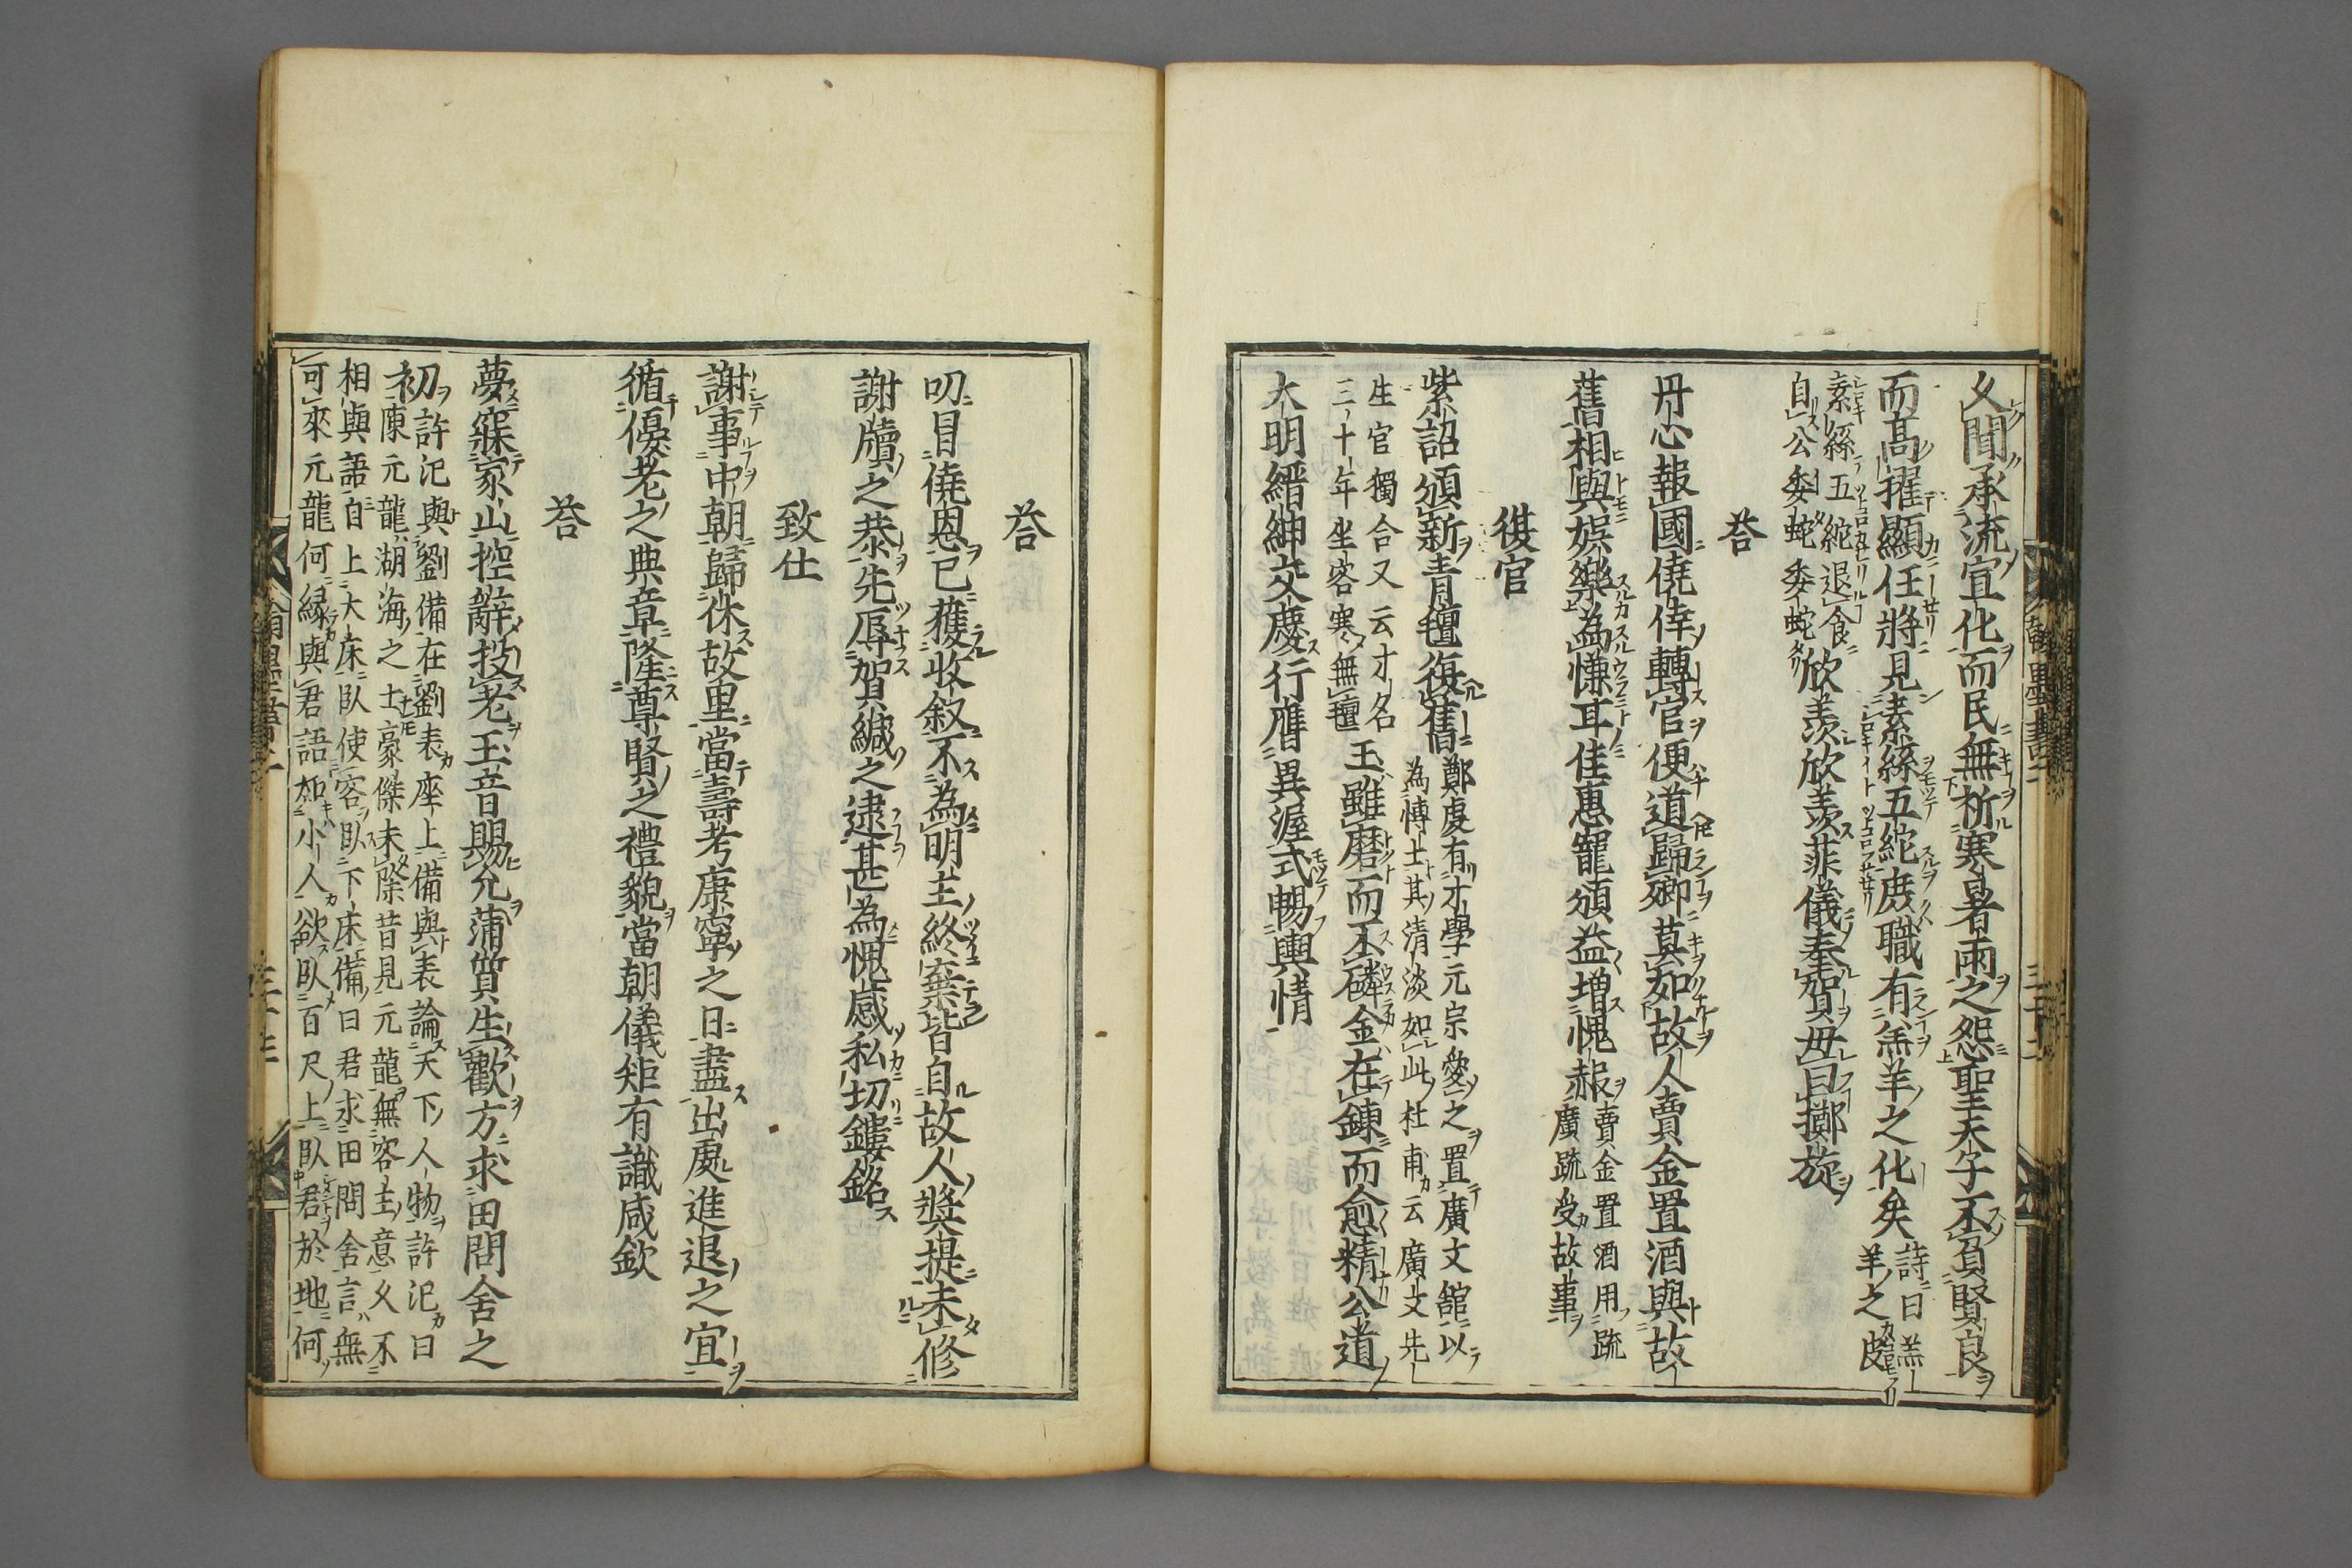 乆聞承流宣化而民無祈寒暑雨之怨聖天子不負賢良
而髙擢顯任將見素絲五紽庶職有羔羊之化矣
詩曰羔
羊之皮
素絲五紽退食
自公委蛇委蛇
欣羨欣羨菲儀奉賀毋曰擲旋
荅
丹心報國僥倖轉官便道歸鄉莫如故人賣金置酒與故
舊相與娯樂為慊耳佳惠寵頒益增愧赧
賣金置酒用䟽
廣䟽受故事
復官
紫詔頒新青氊復舊
鄭虔有才學元宗愛之置廣文舘以
為博士其清淡如此杜甫云廣文先
生官獨合又云才名
三十年坐客寒無氊
玉雖磨而不磷金在鍊而愈精公道
大明縉紳交慶行膺異渥式暢輿情
荅
叨冒僥恩已獲收叙不為明主終棄皆自故人奬提未修
謝牘之恭先辱賀緘之逮甚為愧感私切鏤銘
致仕
謝事中朝歸休故里當壽考康寧之日盡出處進退之宜
循優老之典章隆尊賢之禮貌當朝儀矩有識咸欽
荅
夢寐家山控辭投老玉音賜允蒲質生歡方求田問舍之
初
許汜與劉備在劉表座上備與表論天下人物許汜曰
陳元龍湖海之士豪傑未除昔見元龍無客主意乆不
相與語自上大床臥使客臥下床備曰君求田問舍言無
可來元龍何緣與君語如小人欲臥百尺上臥君於地何